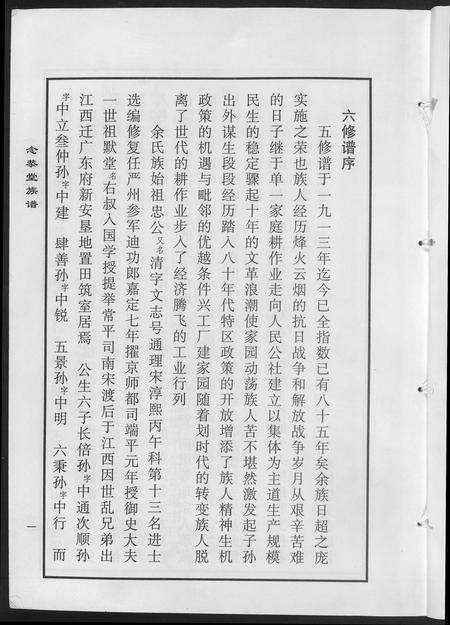 六修谱序
五修谱于一九一三年迄今已全指数已有八十五年矣余族日超之庞
实施之荣也族人经历烽火云烟的抗日战争和解放战争岁月从艰辛苦难
的日子继于单一家庭耕作业走向人民公社建立以集体为主道生产规模
民生的稳定骤起十年的文革浪潮使家园动荡族人苦不堪然激发起子孙
出外谋生段段经历踏入八十年代特区政策的开放增添了族人精神生机
政策的机遇与毗邻的优越条件兴工厂建家园随着划时代的转变族人脱
离了世代的耕作业步入了经济腾飞的工业行列
余氏族始祖忠公又名清字文志号通理宋淳熙丙午科第十三名进士
选编修复任严州参军迪功郎嘉定七年擢京师都司端平元年授御史大夫
一世祖默堂名右叔入国学授提举常平司南宋渡后于江西因世乱兄弟出
江西迁广东府新安垦地置田筑室居焉 公生六子长倍孙字中通次顺孙
字中立叁仲孙字中建 肆善孙字中锐 五景孙字中明 六秉孙字中行 而
念泰堂族谱
一